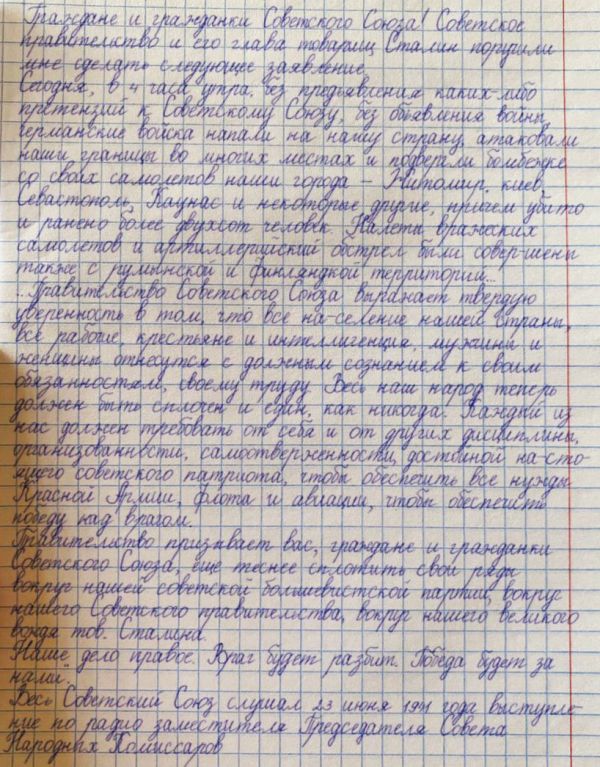 Граждане и гражданки Советского Союза! Советское
правительство и его глава товарищ Сталин поручили
мне сделать следующее заявление.
Сегодня, в 4 часа утра, без предъявления каких-либо
претензий к Советскому Союзу, без объявления войны,
германские войска напали на нашу страну, атаковали
наши границы во многих местах и подвергли бомбежке
со своих самолетов наши города – Житомир, киев,
Севастополь, Каунас и некоторые другие, причем убито
и ранено более двухсот человек. Налеты вражеских
самолетов и артиллерийский обстрел были совер-шены
также с румынской и финляндкой территории...
...Правительство Советского Союза выражает твердую
уверенность в том, что все на-селение нашей страны,
все рабочие, крестьяне и интеллигенция, мужчины и
женщины отнесутся с должным сознанием к своим
обязанностям, своему труду. Весь наш народ теперь
должен быть сплочен и един, как никогда. Каждый из
нас должен требовать от себя и от других дисциплины,
организованности, самоотверженности, достойной на-сто-
ящего советского патриота, чтобы обеспечить все нужды
Красной Армии, флота и авиации, чтобы обеспечить
победу над врагом.
Правительство призывает вас, граждане и гражданки
Советского Союза, еще теснее сплотить свои ряды
вокруг нашей советской большевистской партии, вокруг
нашего Советского правительства, вокруг нашего великого
вождя тов. Сталина.
Наше дело правое. Враг будет разбит. Победа будет за
нами."
Весь Советский Союз слушал 23 июня 1941 года выступле-
ние по радио заместителя Председателя Совета
Народных Комиссаров